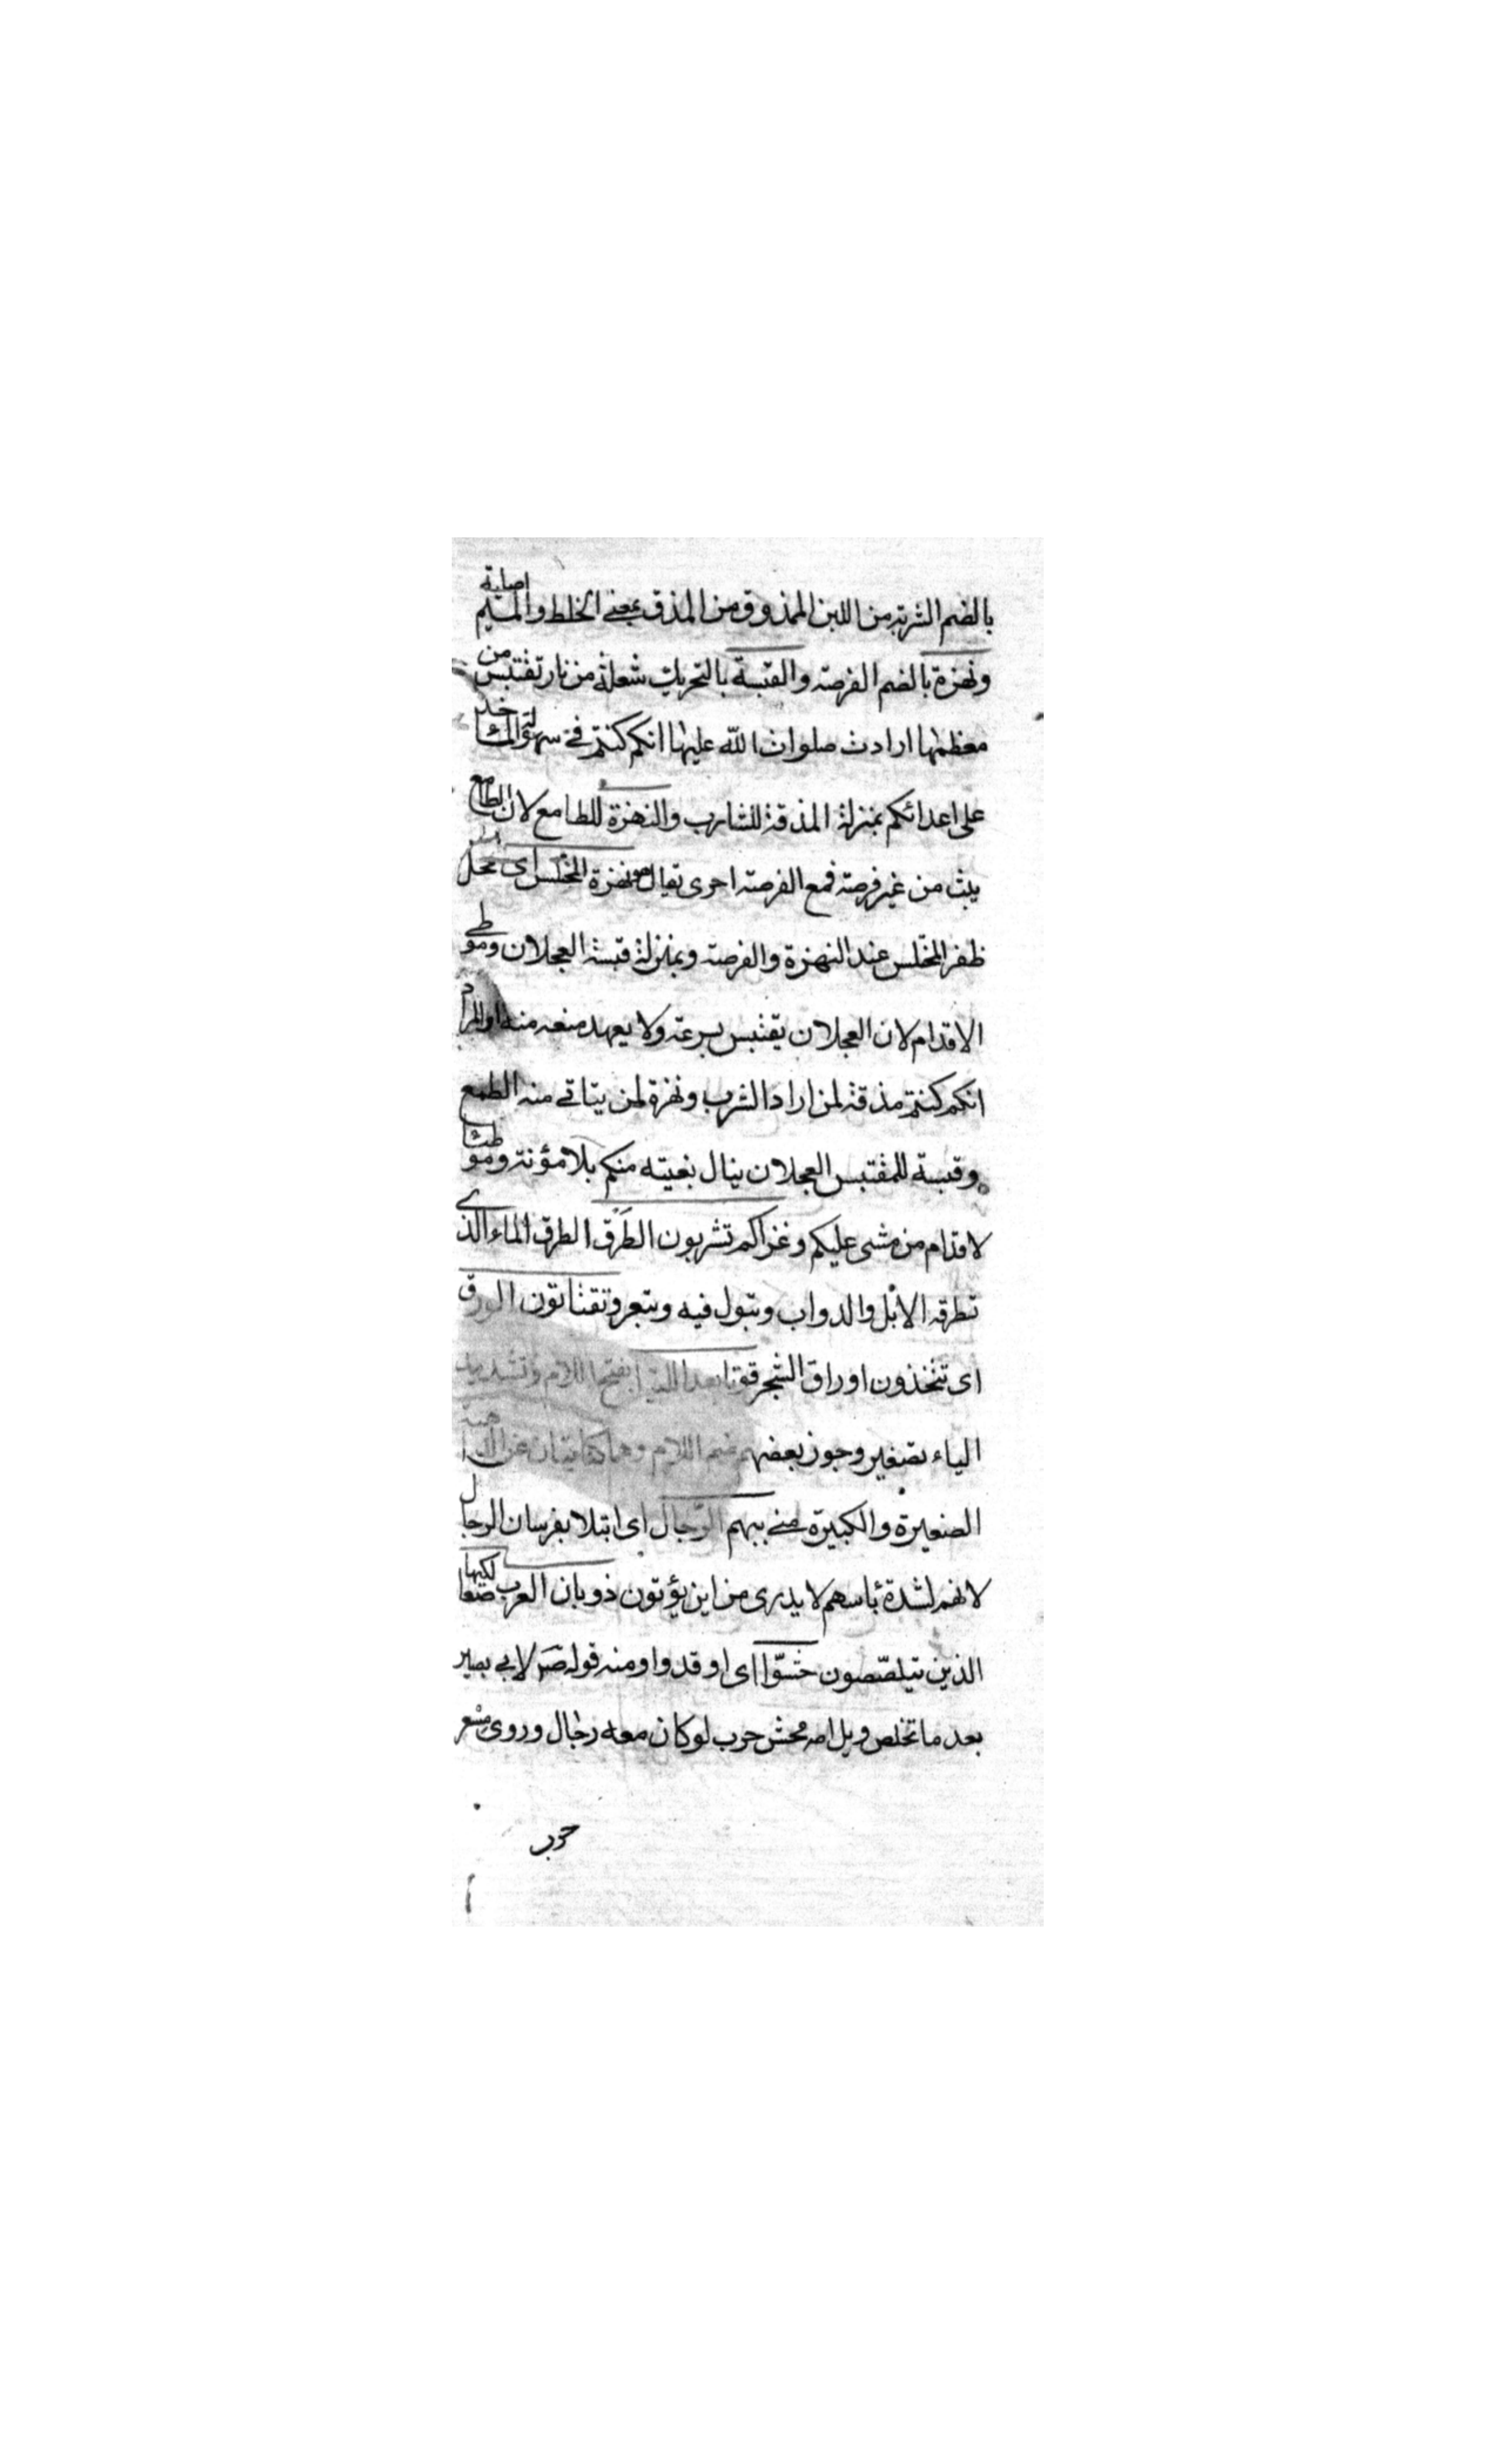 بالضم الشربة من اللبن الممذوق من المذق بمعنى الخلط والميم اصلية
ونهزة بالضم الفرصة والقبسة بالتحريك شعلة من نار تقتبس من
معظمها ارادت صلوات الله عليها انكم كنتم فى سهولة الماخذ
على اعدائكم بمنزلة المذقة للشارب والنهزة للطامع لان الطامع
يثب من غير فرصة فمع الفرصة احرى يقال هو نهزة المختلس اى محل
ظفر المختلس عند النهزة والفرصة وبمنزلة قبسة العجلان وموطى
الاقدام لان العجلان يقتبس بسرعة ولا يعهد منعه منه او المراد
انكم كنتم مذقة لمن اراد الشرب ونهزة لمن يتاتى منه الطمع
وقبسة للمقتبس العجلان ينال بغيته منكم بلا مؤنة وموطئا
لاقدام من مشى عليكم وغزاكم تشربون الطَرَق الطرق الماء الذى
تطرقه الابل والدواب وتبول فيه وتبعر وتقتاتون الورق
اى تتخذون اوراق الشجر قوتا بعد اللتيا بفتح اللام وتشديد
الياء تصغير وجوز بعضهم ضم اللام وهما كنايتان عن الداهية
الصغيرة والكبيرة منى ببهم الرجال اى ابتلا بفرسان الرجال
لانهم لشدة بأسهم لا يدرى من اين يؤتون ذوبان العرب صعاليكها
الذين يتلصصون حشوا اى اوقدوا ومنه قوله ص لابى بصير
بعد ما تخلص ويل امه محش حرب لو كان معه رجال وروى مسعر
حرب